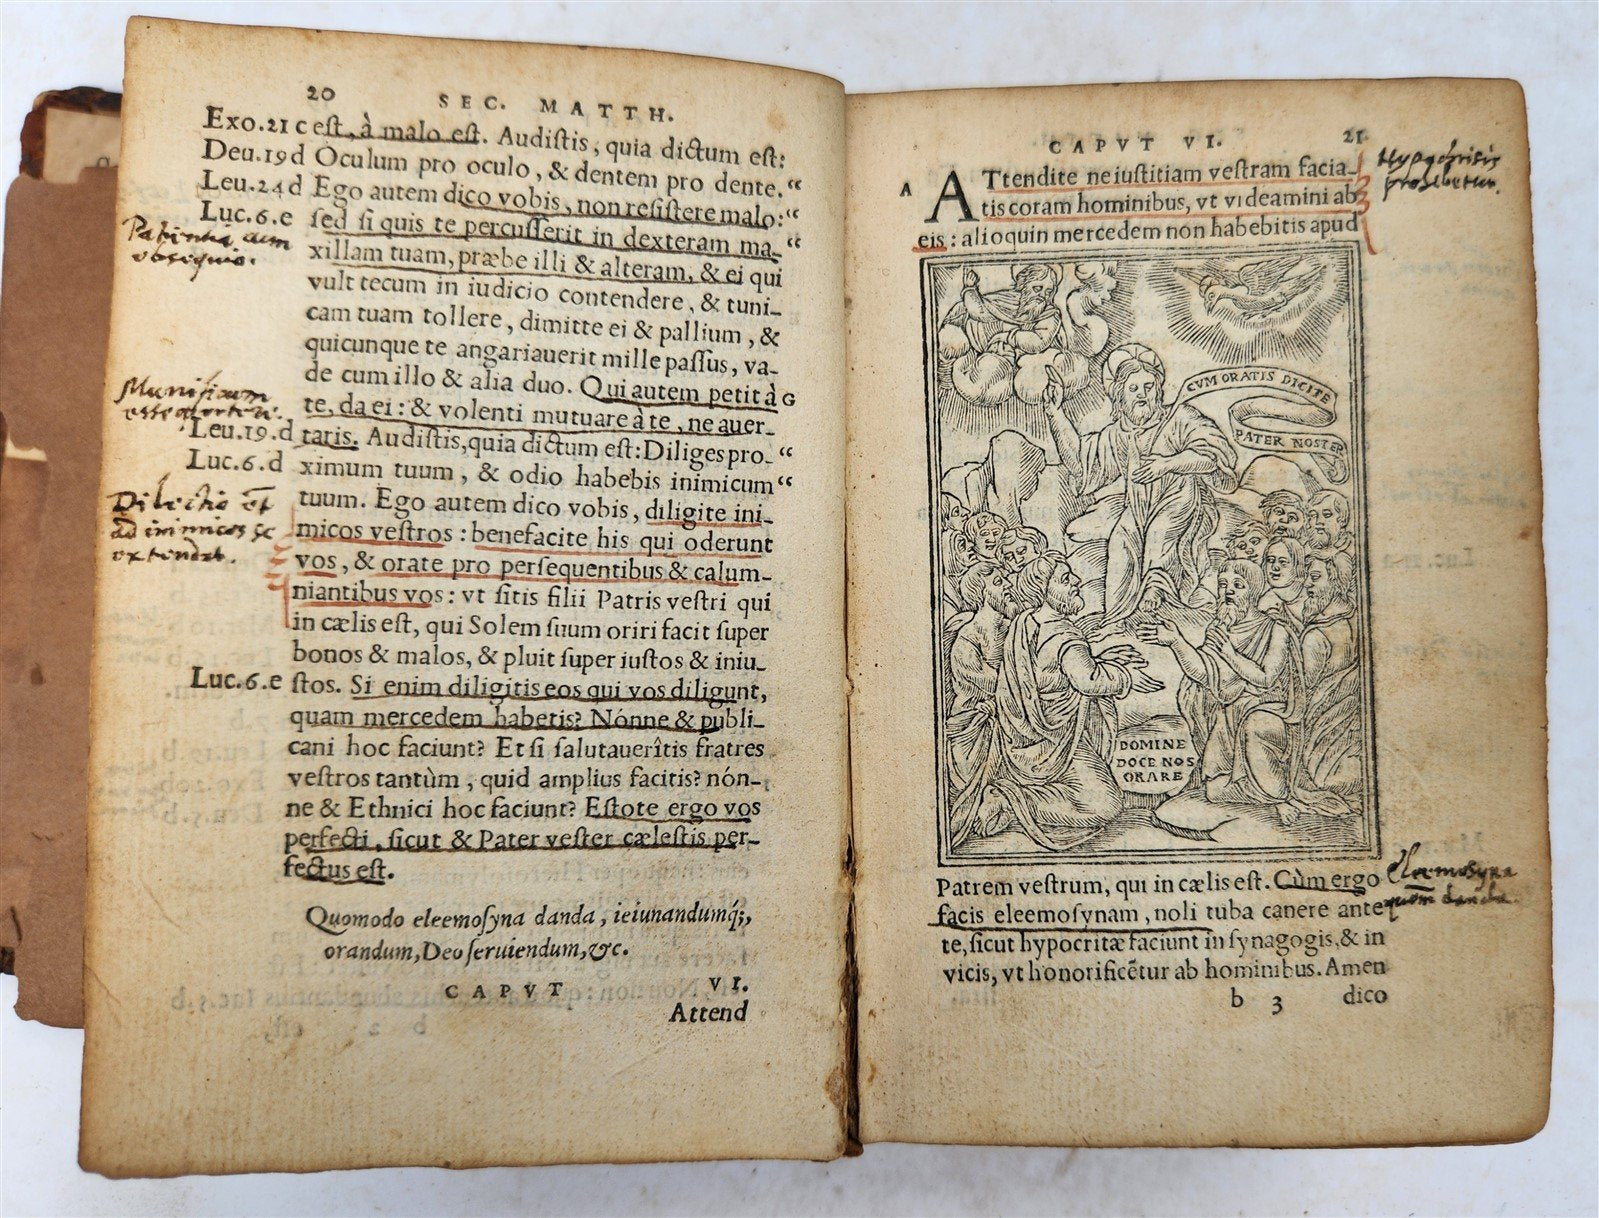 20 SEC. MATTH.
Exo.21 c est, à malo est. Audistis, quia dictum est:
Deu.19 d Oculum pro oculo, & dentem pro dente. “
Leu.24 d Ego autem dico vobis, non resistere malo: “
Luc.6.e sed si quis te percusserit in dexteram ma- “
Patientia cum
obsequio.
xillam tuam, præbe illi & alteram, & ei qui
vult tecum in iudicio contendere, & tuni-
cam tuam tollere, dimitte ei & pallium, &
quicunque te angariauerit mille passus, va-
de cum illo & alia duo. Qui autem petit à G
Munificum
esse oportere.
te, da ei: & volenti mutuare à te, ne auer-
Leu.19.d taris. Audistis, quia dictum est: Diliges pro- “
Luc.6.d ximum tuum, & odio habebis inimicum “
tuum. Ego autem dico vobis, diligite ini-
Dilectio et
ad inimicos se
extendat.
micos vestros: benefacite his qui oderunt
vos, & orate pro persequentibus & calum-
niantibus vos: vt sitis filii Patris vestri qui
in cælis est, qui Solem suum oriri facit super
bonos & malos, & pluit super iustos & iniu-
Luc.6.e stos. Si enim diligitis eos qui vos diligunt,
quam mercedem habetis? Nónne & publi-
cani hoc faciunt? Et si salutauerîtis fratres
vestros tantùm, quid amplius facitis? nón-
ne & Ethnici hoc faciunt? Estote ergo vos
perfecti, sicut & Pater vester cælestis per-
fectus est.
Quomodo eleemosyna danda, ieiunandumq́;,
orandum, Deo seruiendum, &c.
CAPVT VI.
Attend
CAPVT VI. 21
A ATtendite ne iustitiam vestram facia-
tis coram hominibus, vt videamini ab
eis: alioquin mercedem non habebitis apud
Hypochrisis
prohibetur.
CVM ORATIS DICITE
PATER NOSTER
DOMINE
DOCE NOS
ORARE
Patrem vestrum, qui in cælis est. Cùm ergo
facis eleemosynam, noli tuba canere ante
Eleemosyna
quõm danda.
te, sicut hypocritæ faciunt in synagogis, & in
vicis, vt honorificẽtur ab hominibus. Amen
b 3 dico